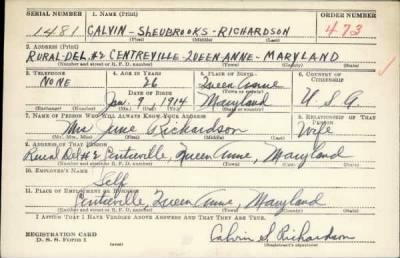 SERIAL NUMBER 1. NAME (Print) ORDER NUMBER
1481 CALVIN - SLEUBROOKS - RICHARDSON 473
(First) (Middle) (Last)
2. ADDRESS (Print)
RURAL-DEL.#2 CENTREVILLE-QUEEN-ANNE-MARYLAND
(Number and street or R. F. D. number) (Town) (County) (State)
3. TELEPHONE 4. AGE IN YEARS 5. PLACE OF BIRTH 6. COUNTRY OF CITIZENSHIP
NONE 26 Queen Anne
DATE OF BIRTH (Town or county)
Jan. 9 1914 Maryland U.S.A.
(Mo.) (Day) (Yr.) (State or country)
7. NAME OF PERSON WHO WILL ALWAYS KNOW YOUR ADDRESS 8. RELATIONSHIP OF THAT PERSON
Mrs June Richardson Wife
(Mr., Mrs., Miss) (First) (Middle) (Last)
9. ADDRESS OF THAT PERSON
Rural Del #2 Centreville, Queen Anne, Maryland
(Number and street or R. F. D. number) (Town) (County) (State)
10. EMPLOYER'S NAME
Self
11. PLACE OF EMPLOYMENT OR BUSINESS
Centreville, Queen Anne, Maryland
(Number and street or R. F. D. number) (Town) (County) (State)
I AFFIRM THAT I HAVE VERIFIED ABOVE ANSWERS AND THAT THEY ARE TRUE.
REGISTRATION CARD
D. S. S. Form 1 (over) Calvin S Richardson
(Registrant's signature)